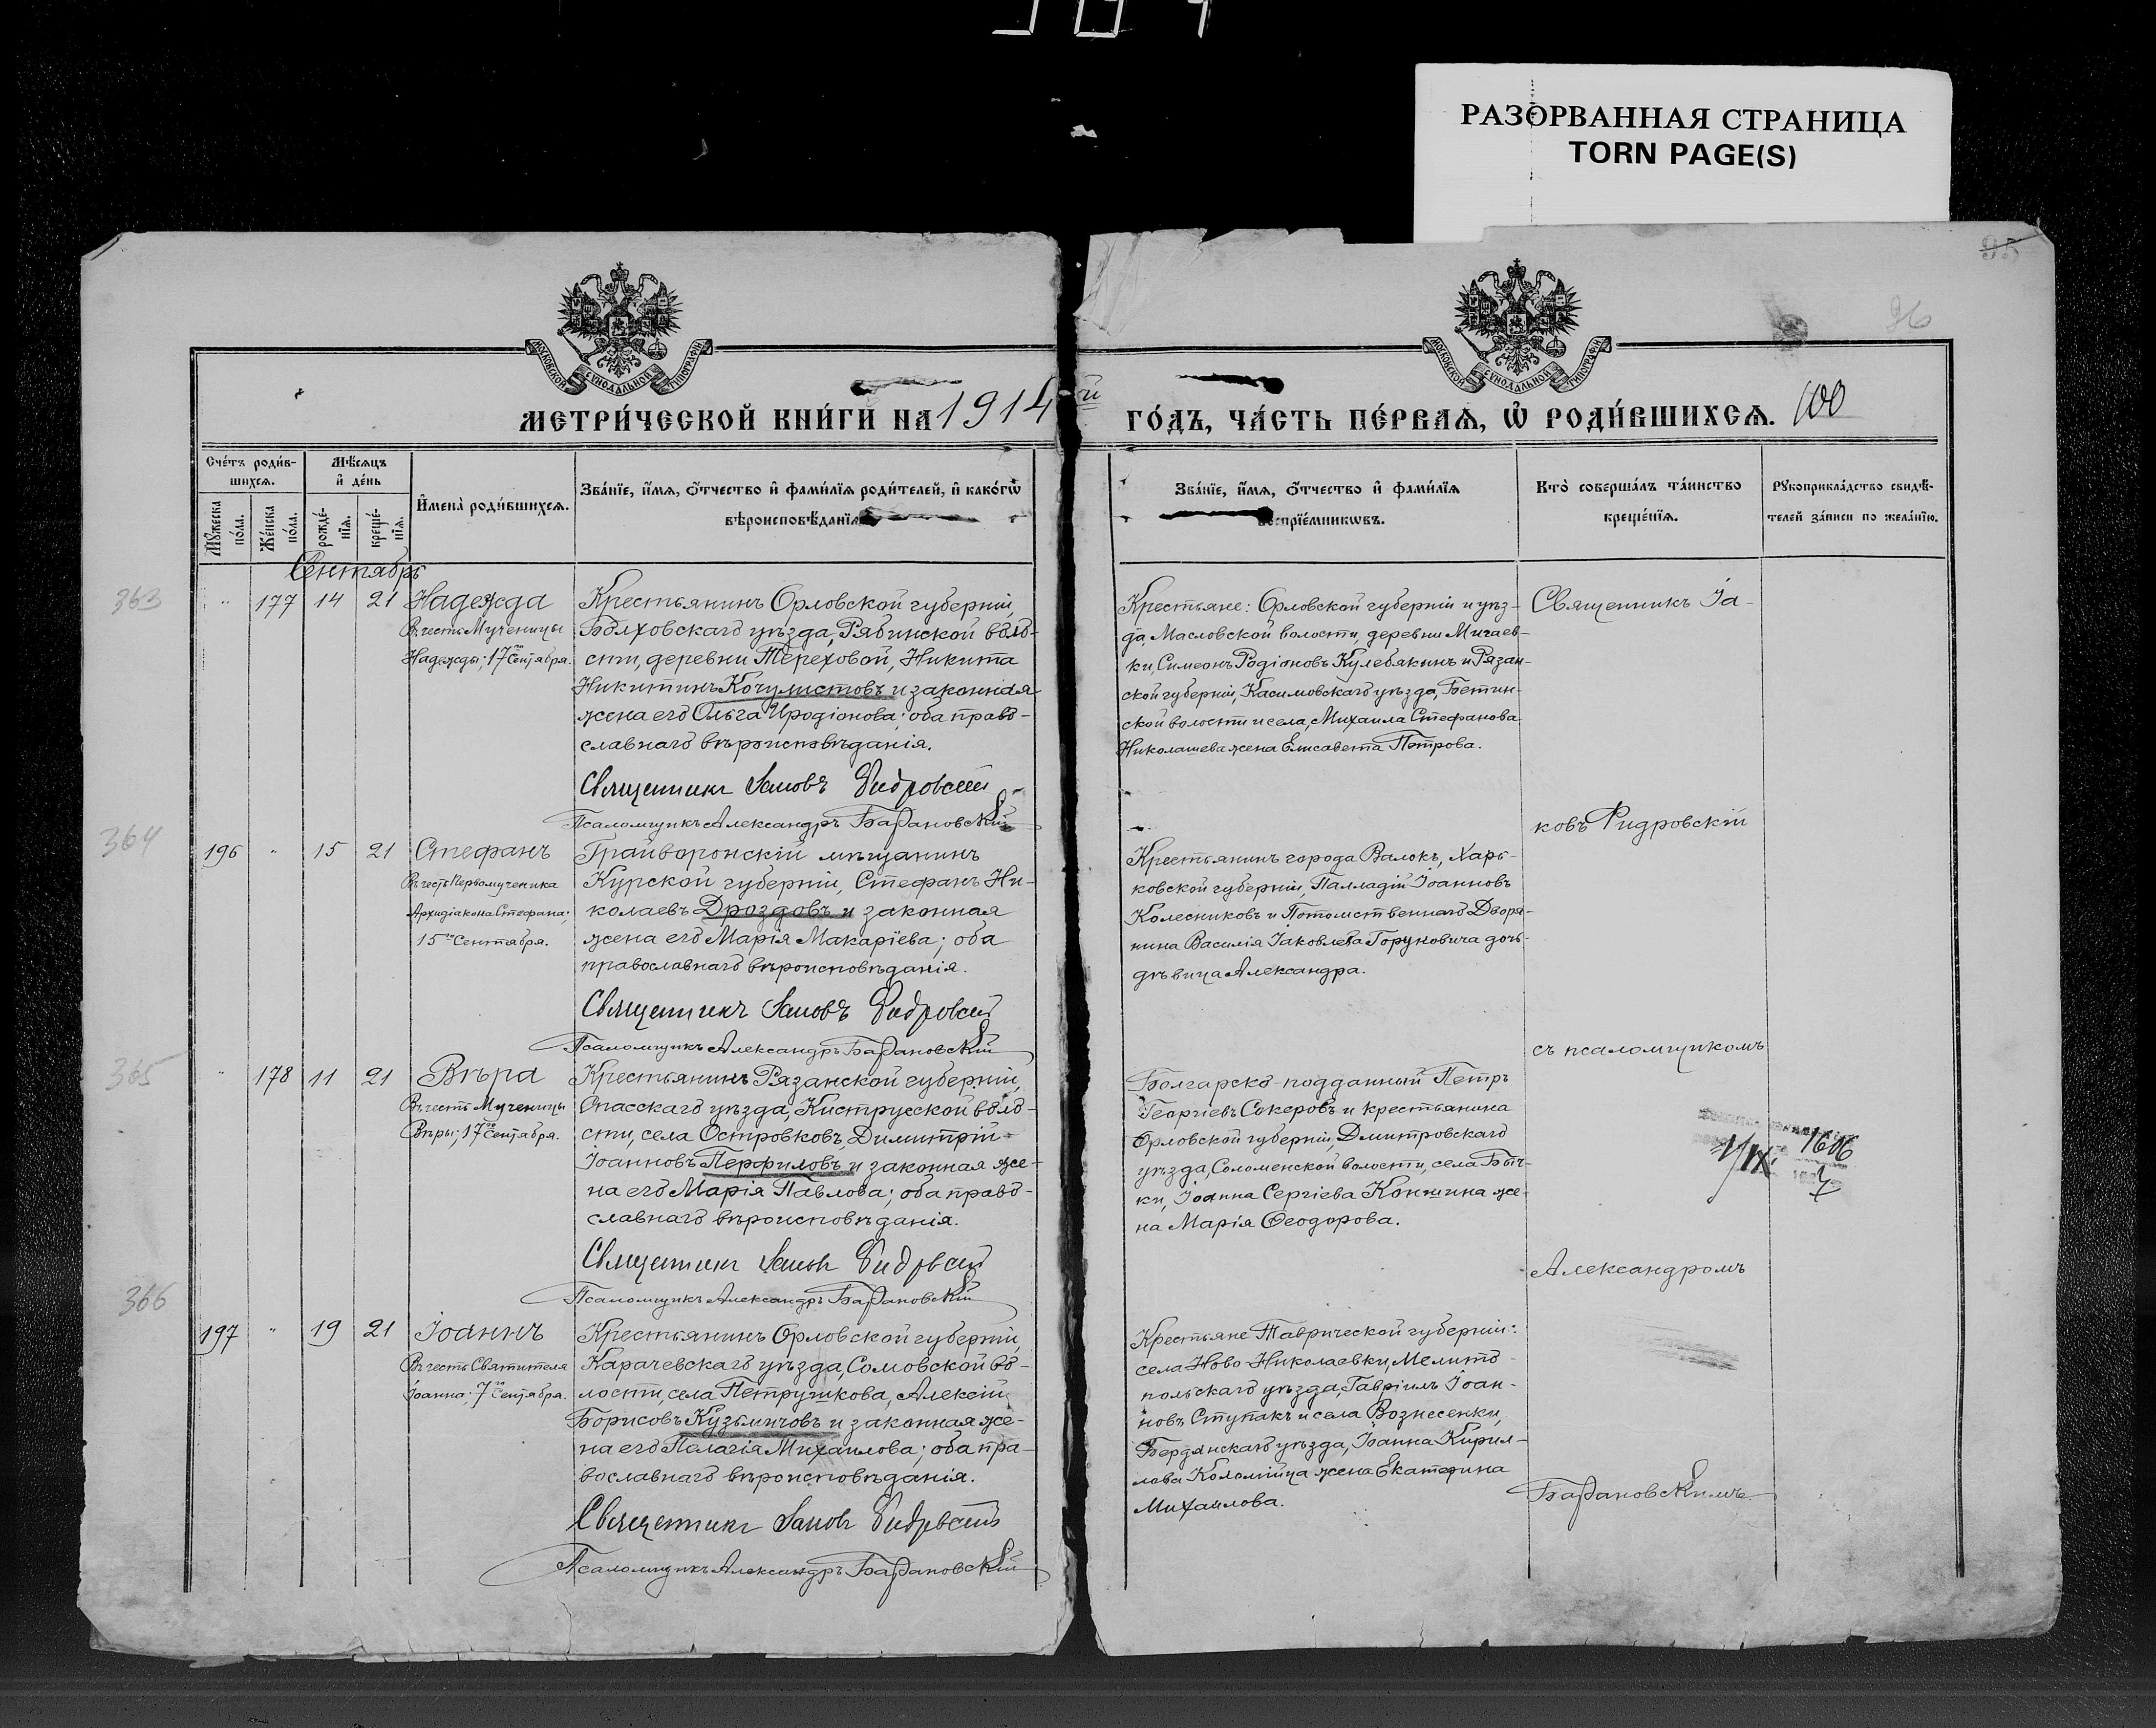 РАЗОРВАННАЯ СТРАНИЦА
TORN PAGE(S)
95
96
МОСКОВСКОЙ СѴНОДАЛЬНОЙ ТИПОГРАФІИ
МОСКОВСКОЙ СѴНОДАЛЬНОЙ ТИПОГРАФІИ
МЕТРИ́ЧЕСКОЙ КНИ́ГИ НА 1914 й ГО́ДЪ, ЧА́СТЬ ПЕ́РВАѦ, Ѡ҆ РОДИ́ВШИХСѦ. 100
Сче́тъ роди́в-
шихсѧ.
Мꙋ́жеска по́ла.
Же́нска по́ла.
Мѣ́сѧцъ
и҆ де́нь
рожде́-
нїѧ.
креще́-
нїѧ.
И҆мена̀ роди́вшихсѧ.
Зва́нїе, и҆́мѧ, ѻ҆́тчество и҆ фами́лїѧ роди́телей, и҆ како́гѡ
вѣроисповѣ́данїѧ
Зва́нїе, и҆́мѧ, ѻ҆́тчество и҆ фами́лїѧ
воспрїе́мникѡвъ.
Кто̀ соверша́лъ та́инство
креще́нїѧ.
Рꙋкоприкла́дство свидѣ́-
телей за́писи по жела́нїю.
Сентябрь
363
177 14 21
Надежда
Въ честь Мученицы
Надежды; 17го Сентября.
Крестьянинъ Орловской губерніи,
Болховскаго уѣзда, Рябинской воло-
сти, деревни Тереховой, Никита
Никитинъ Кочулистовъ и законная
жена его Ольга Иродіонова; оба право-
славнаго вѣроисповѣданія.
Священникъ Іаковъ Фидровскій
Псаломщикъ Александръ Барановскій
Крестьяне: Орловской губерніи и уѣз-
да, Масловской волости, деревни Мичаев-
ки, Симеонъ Родіоновъ Кулебякинъ и Рязан-
ской губерніи, Касимовскаго уѣзда, Бетин-
ской волости и села, Михаила Стефанова
Николашева жена Елисавета Петрова.
Священникъ Іа-
ковъ Фидровскій
364
196 15 21
Стефанъ
Въ честь Первомученика
Архидіакона Стефана;
15го Сентября.
Грайворонскій мѣщанинъ
Курской губерніи, Стефанъ Ни-
колаевъ Дроздовъ и законная
жена его Марія Макаріева; оба
православнаго вѣроисповѣданія.
Священникъ Іаковъ Фидровскій
Псаломщикъ Александръ Барановскій
Крестьянинъ города Валокъ, Харь-
ковской губерніи, Палладій Іоанновъ
Колесниковъ и Потомственнаго Дворя-
нина Василія Іаковлева Горуновича дочь-
дѣвица Александра.
съ псаломщикомъ
365
178 11 21
Вѣра
Въ честь Мученицы
Вѣры; 17го Сентября.
Крестьянинъ Рязанской губерніи,
Спасскаго уѣзда, Киструсской воло-
сти, села Островковъ, Димитрій
Іоанновъ Перфиловъ и законная же-
на его Марія Павлова; оба право-
славнаго вѣроисповѣданія.
Священникъ Іаковъ Фидровскій
Псаломщикъ Александръ Барановскій
Болгарско-подданный Петръ
Георгіевъ Сокеровъ и крестьянина
Орловской губерніи, Дмитровскаго
уѣзда, Соломенской волости, села Быч-
ки, Іоанна Сергіева Конкина же-
на Марія Ѳеодорова.
Александромъ
1606
366
197 19 21
Іоаннъ
Въ честь Святителя
Іоанна; 7го Сентября.
Крестьянинъ Орловской губерніи,
Карачевскаго уѣзда, Сомовской во-
лости, села Петрушкова, Алексій
Борисовъ Кузьмичовъ и законная же-
на его Пелагія Михаилова; оба пра-
вославнаго вѣроисповѣданія.
Священникъ Іаковъ Фидровскій
Псаломщикъ Александръ Барановскій
Крестьяне Таврической губерніи:
села Ново-Николаевки, Мелито-
польскаго уѣзда, Гавріилъ Іоан-
новъ Ступакъ и села Вознесенки,
Бердянскаго уѣзда, Іоанна Кирил-
лова Коломійца жена Екатерина
Михаилова.
Барановскимъ